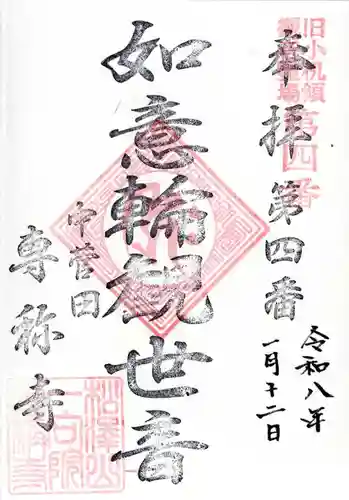 旧小机領
観音霊場
第四番
奉拝
第四番
令和八年
一月十二日
如意輪観世音
中菅田
専称寺